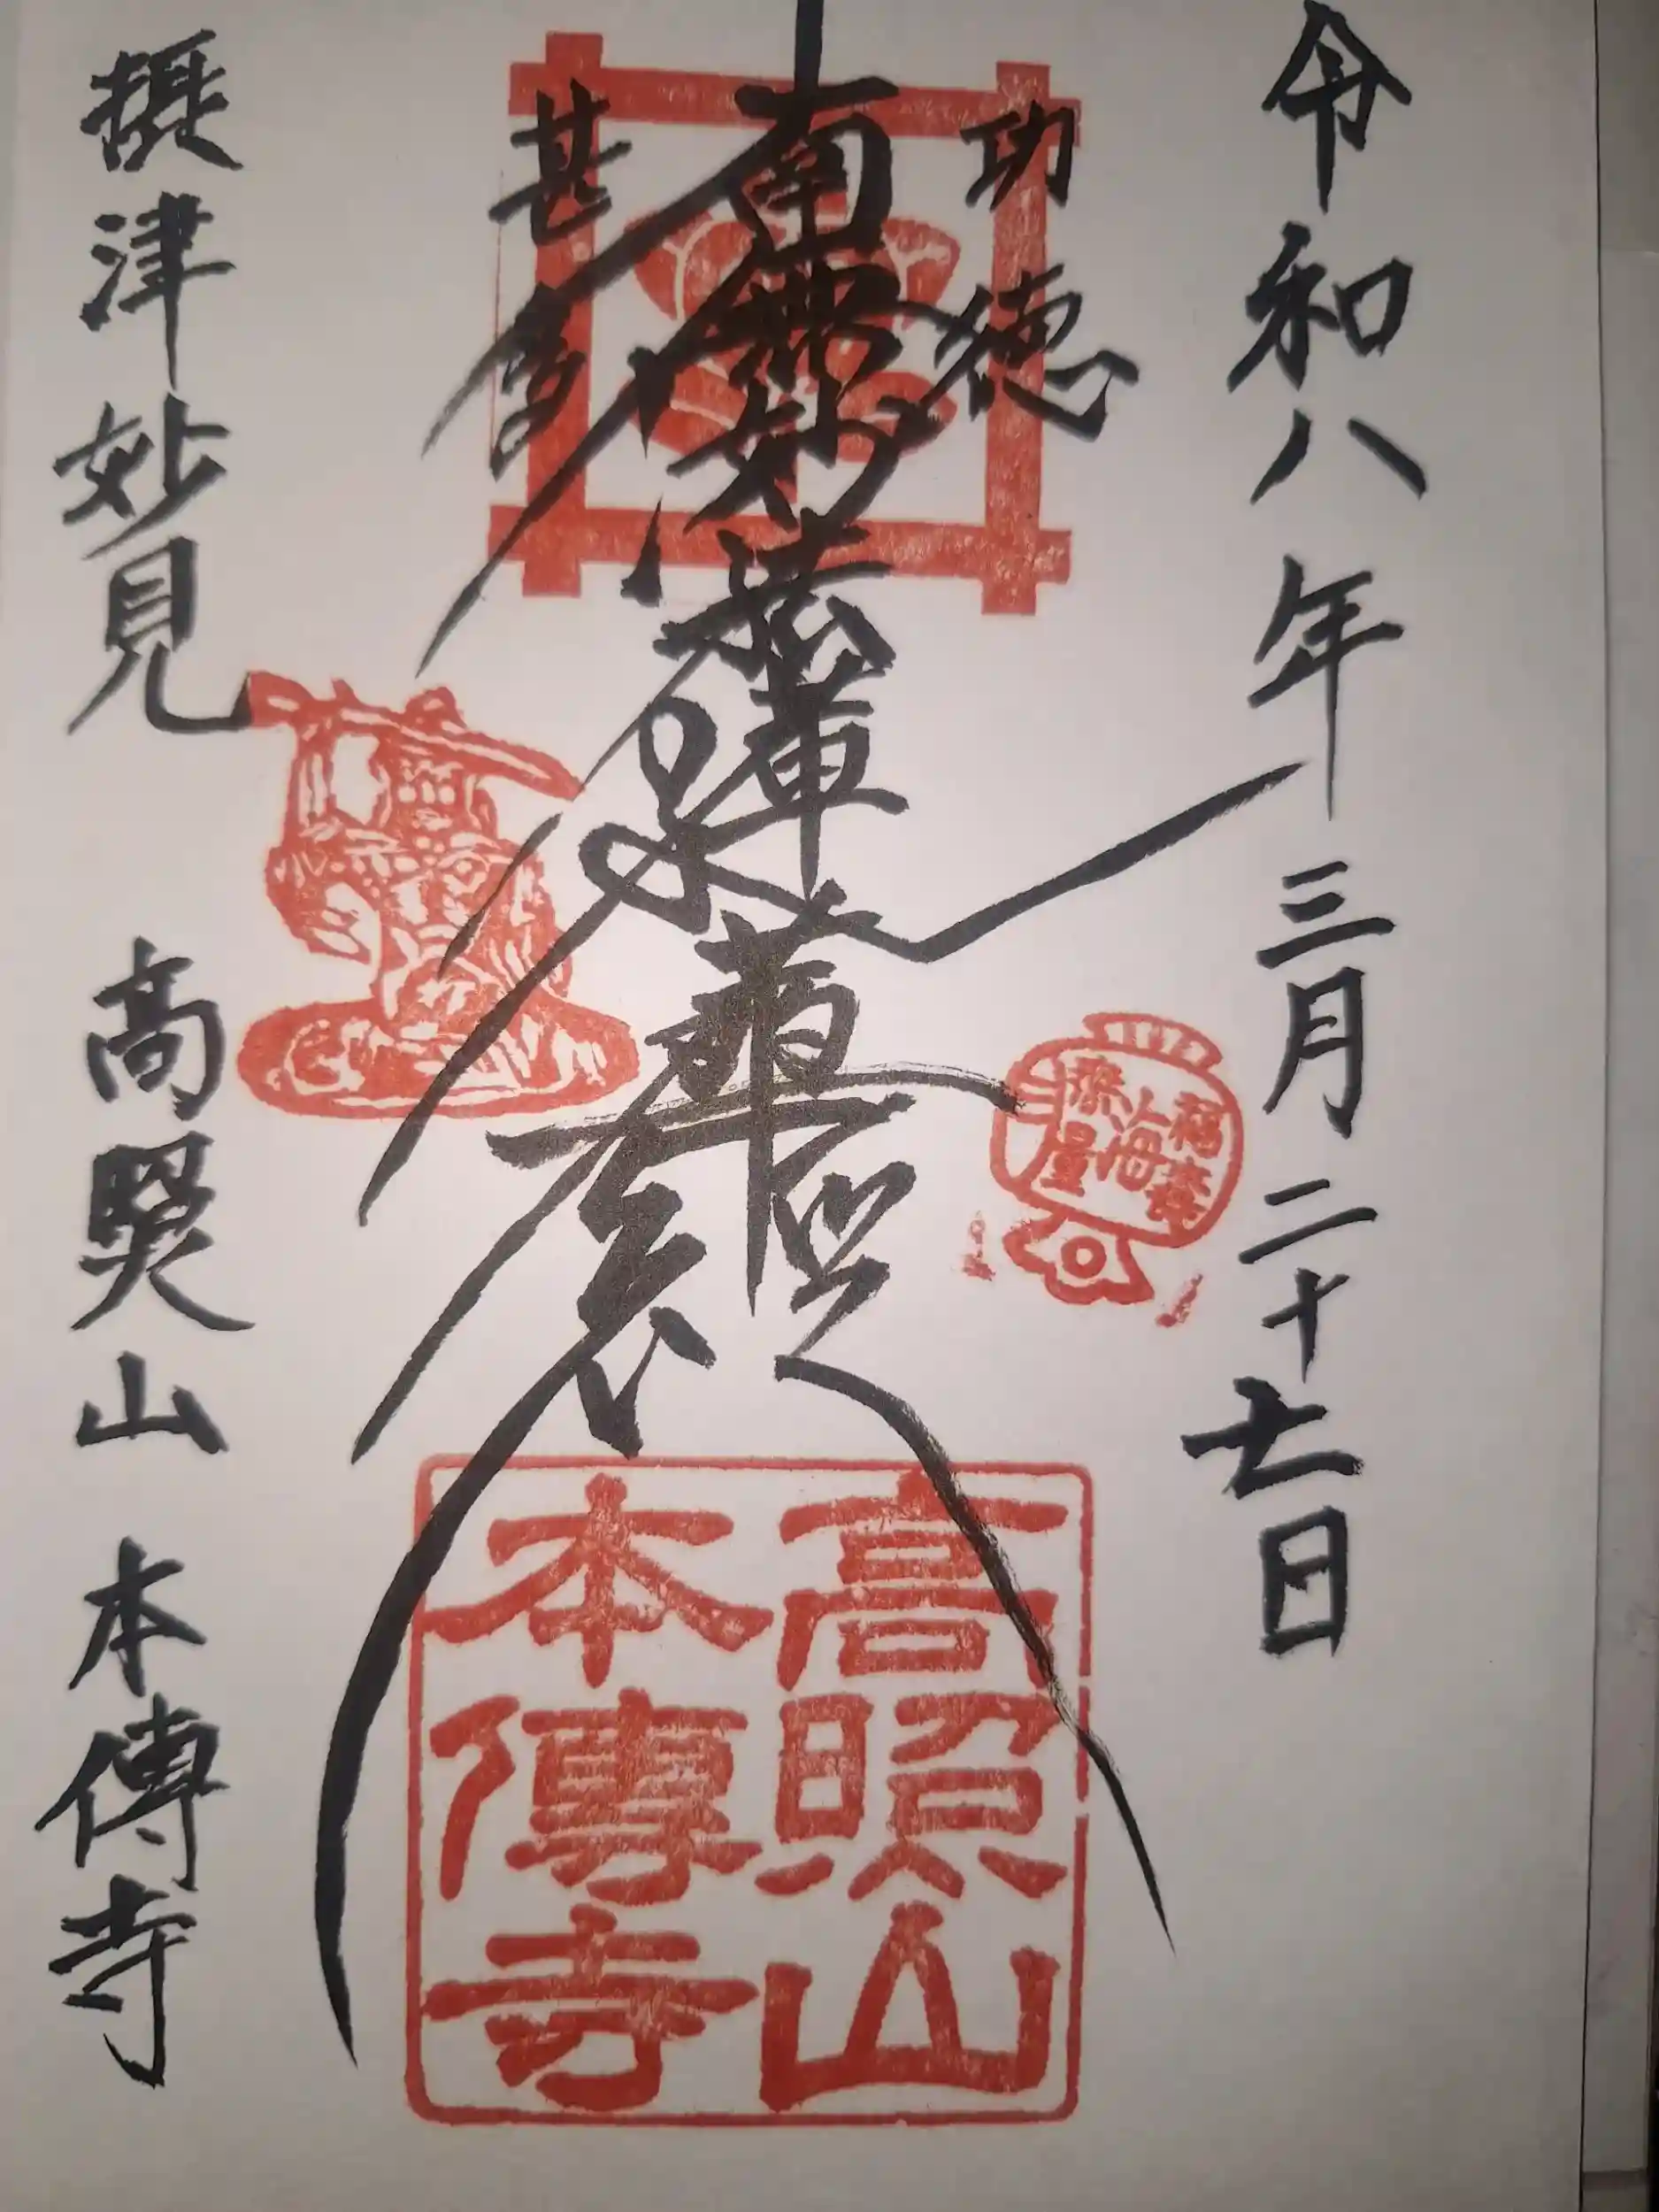 令和八年三月二十七日
功徳
南無妙法蓮華經
甚多
福壽海無量
高照山
本傳寺
摂津妙見 高照山 本傳寺